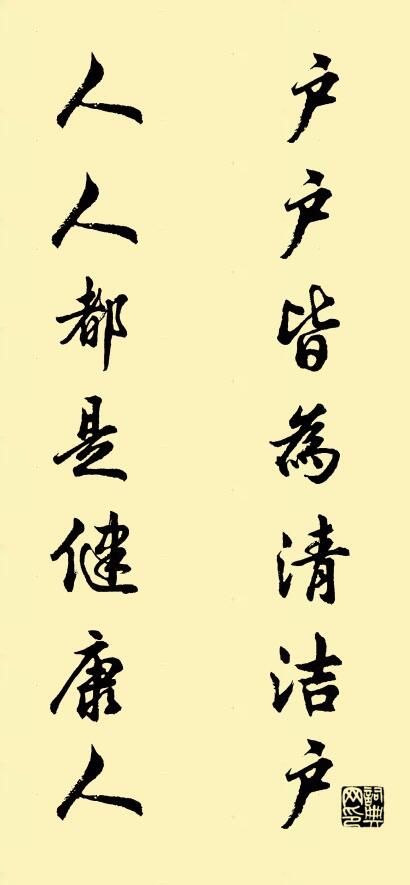 户户皆為清洁户
人人都是健康人
詞典
网印